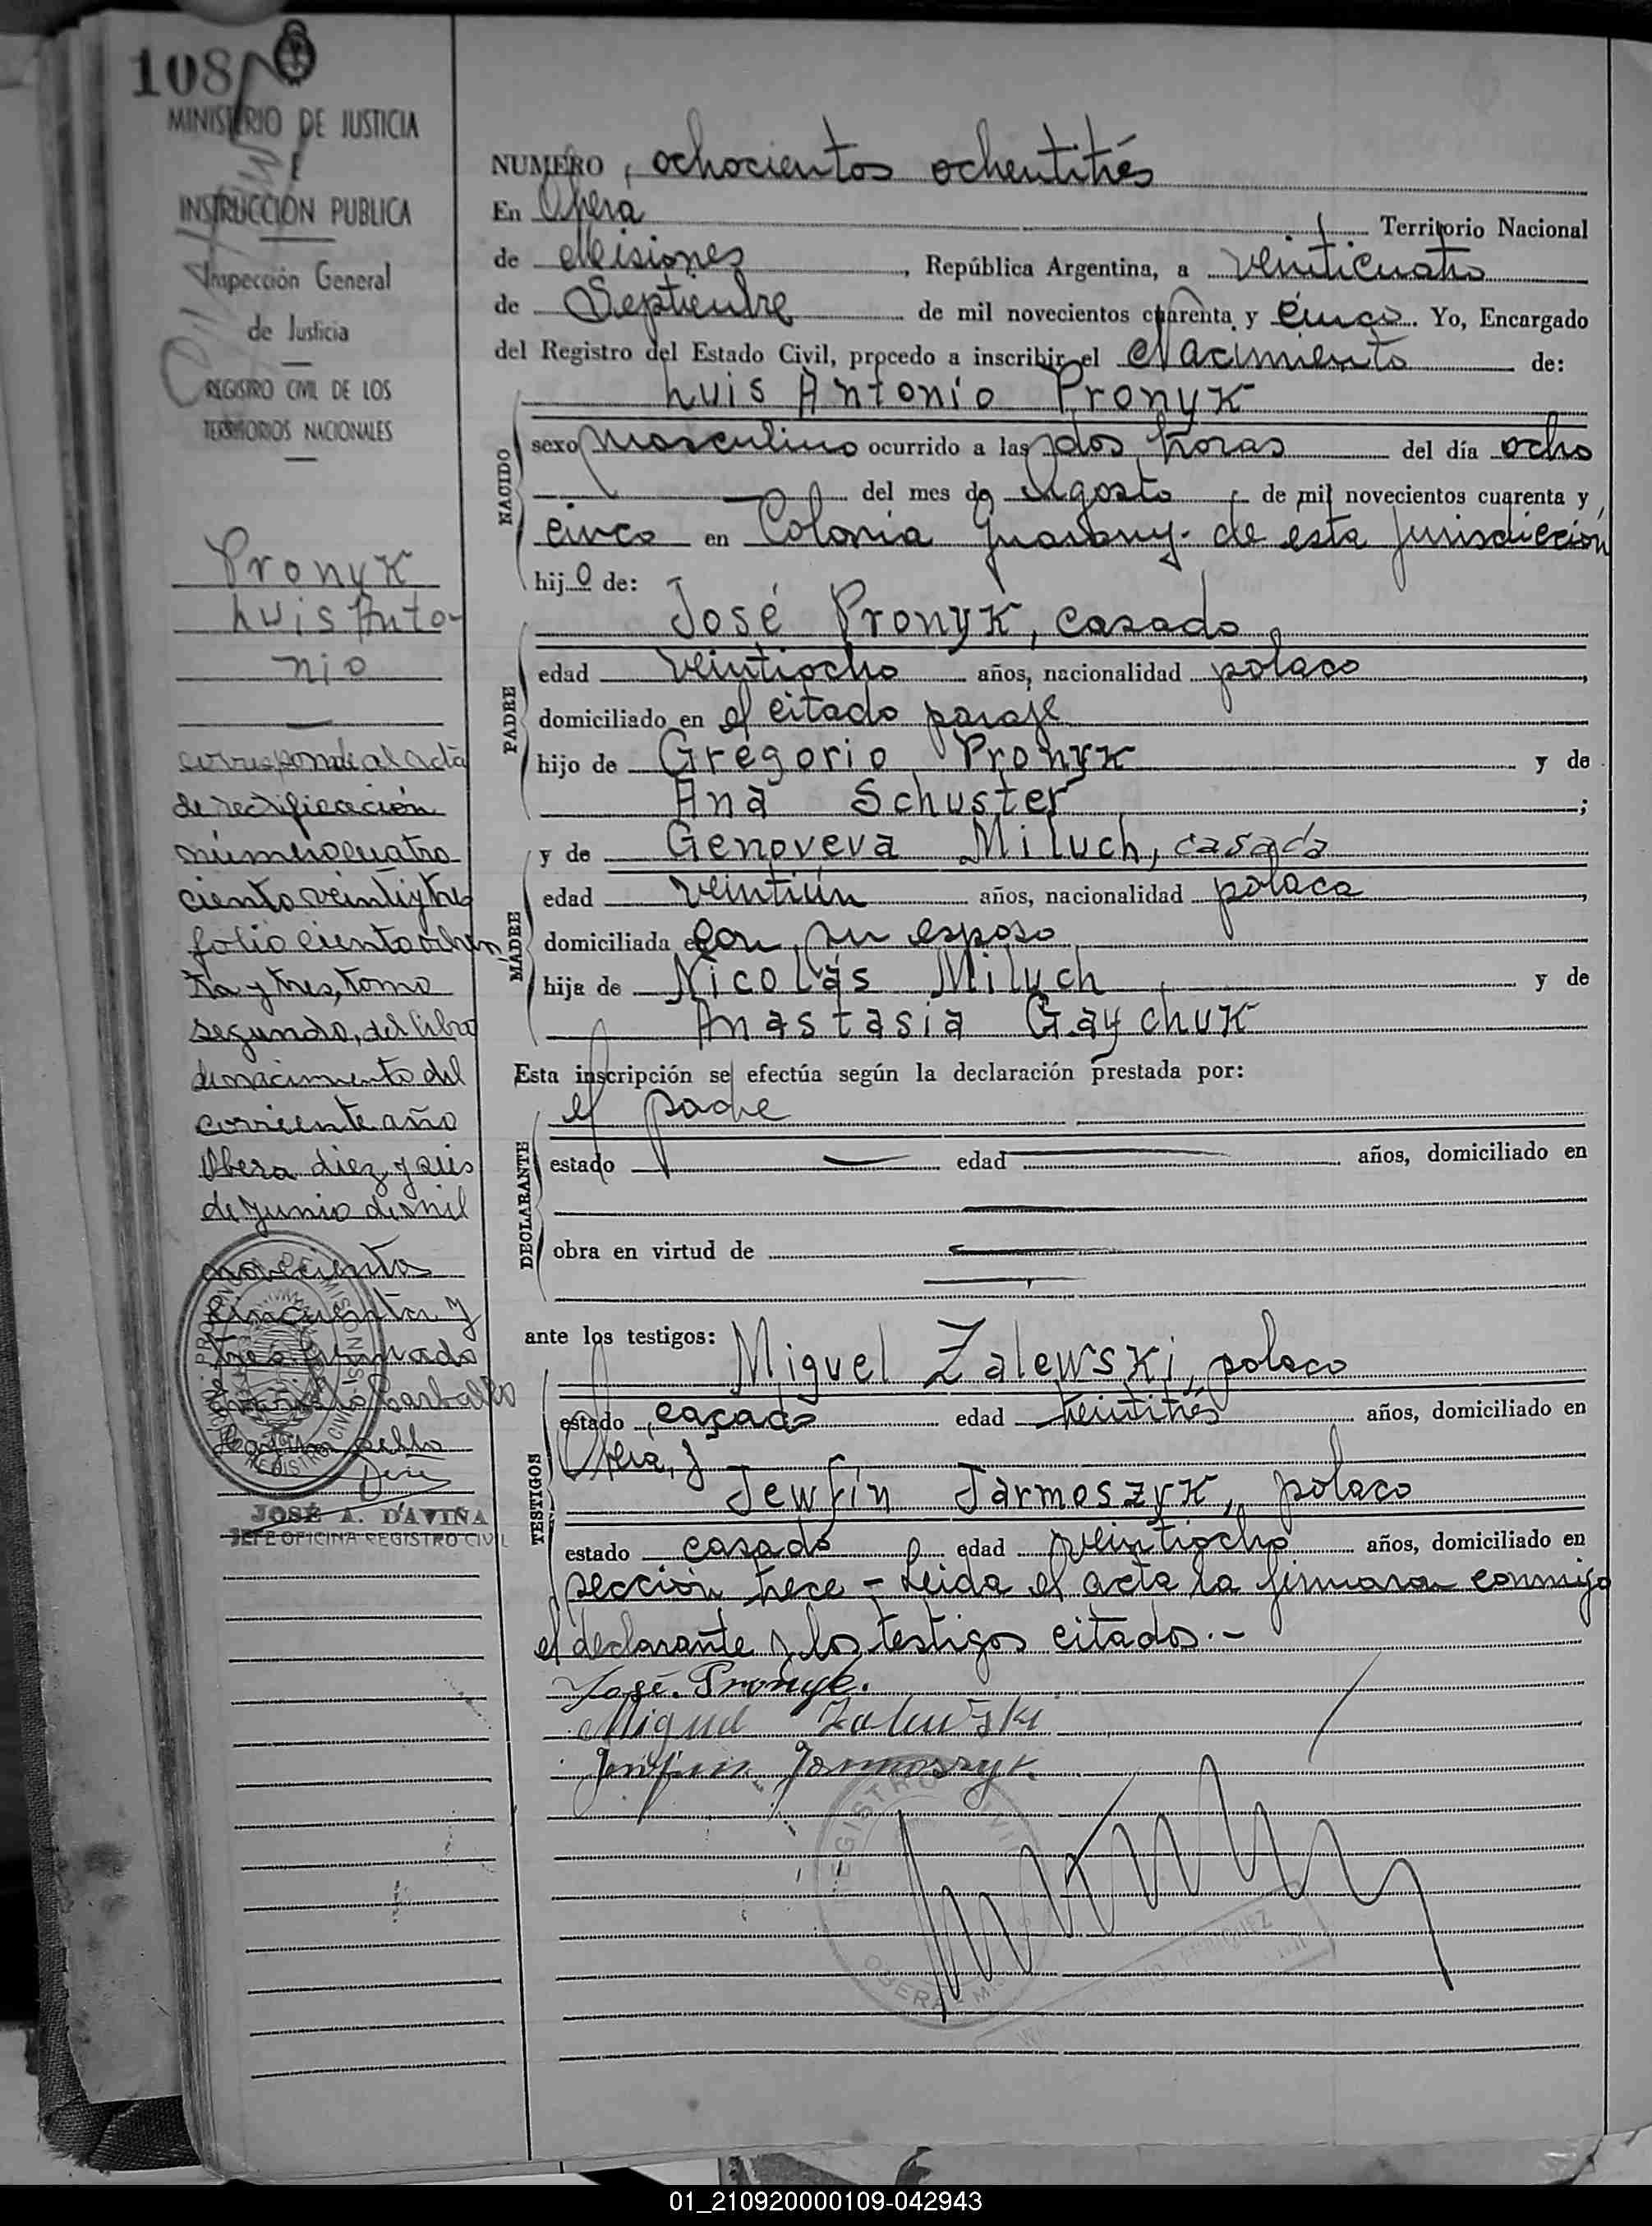 108
MINISTERIO DE JUSTICIA
E
INSTRUCCIÓN PUBLICA
Inspección General
de Justicia
REGISTRO CIVIL DE LOS
TERRITORIOS NACIONALES
Pronyk
Luis Anto-
nio
corresponde al acta
de rectificación
número cuatro
ciento veintiytres
folio ciento ochen
ta y tres, tomo
segundo, del libro
de nacimiento del
corriente año
Obera diez y seis
de junio de mil
novecientos
cincuenta y
tres firmado
Carballo
sello
JOSÉ A. D'AVIÑA
JEFE OFICINA REGISTRO CIVIL
NUMERO, ochocientos ochentitrés
En Obera Territorio Nacional
de Misiones, República Argentina, a veinticuatro
de Septiembre de mil novecientos cuarenta y cinco. Yo, Encargado
del Registro del Estado Civil, procedo a inscribir el Nacimiento de:
Luis Antonio Pronyk
NACIDO
sexo masculino ocurrido a las dos horas del día ocho
del mes de Agosto de mil novecientos cuarenta y
cinco en Colonia Guarany. de esta jurisdicción
hijo de:
José Pronyk, casado
PADRE
edad veintiocho años, nacionalidad polaco,
domiciliado en el citado paraje
hijo de Gregorio Pronyk y de
Ana Schuster;
y de Genoveva Miluch, casada
MADRE
edad veintiún años, nacionalidad polaca,
domiciliada con su esposo
hija de Nicolás Miluch y de
Anastasia Gaychuk
Esta inscripción se efectúa según la declaración prestada por:
el padre
DECLARANTE
estado edad años, domiciliado en
obra en virtud de
ante los testigos: Miguel Zalewski, polaco
TESTIGOS
estado casado edad treintitrés años, domiciliado en
Obera, y
Jewfin Jarmoszyk, polaco
estado casado edad veintiocho años, domiciliado en
sección trece - Leida el acta la firmaron conmigo
el declarante y los testigos citados.-
José. Pronyk.
Miguel Zalewski
Jewfin Jarmoszyk.
REGISTRO CIVIL
OBERA - MIS
01_210920000109-042943